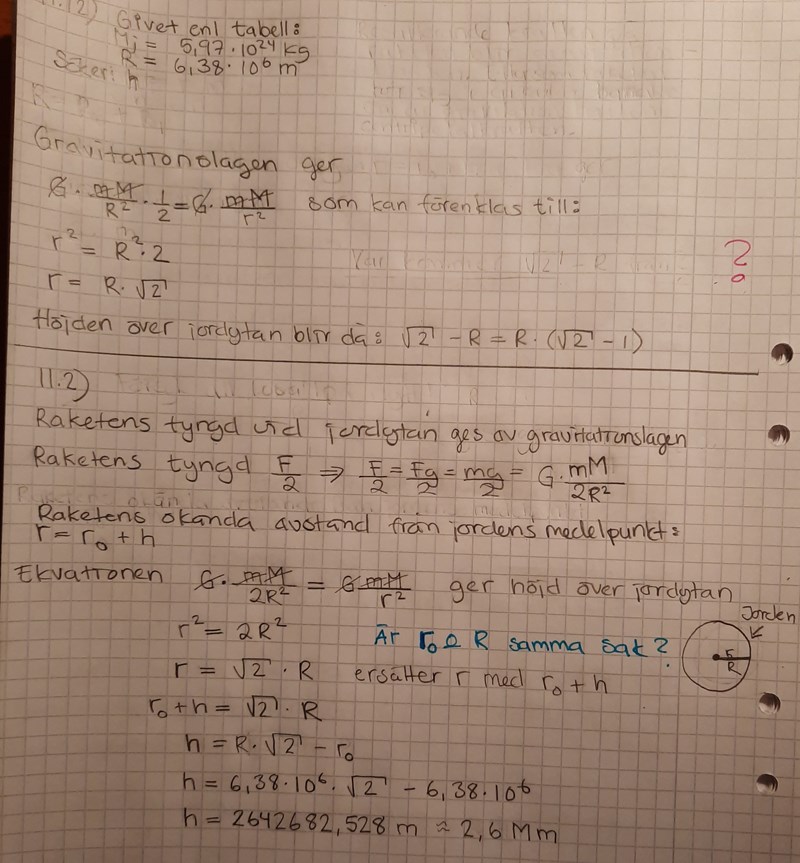 11.12) Givet enl tabell:
Mj = 5,97·10²⁴ kg
R = 6,38·10⁶ m
Söker: h
Gravitationslagen ger
G · mM/R² · 1/2 = G · mM/r² som kan förenklas till:
r² = R²·2
r = R·√2
?
Höjden över jordytan blir då: √2 - R = R·(√2 - 1)
11.2)
Raketens tyngd vid jordytan ges av gravitationslagen
Raketens tyngd F/2 ⇒ F/2 = Fg/2 = mg/2 = G·mM/2R²
Raketens okända avstånd från jordens medelpunkt:
r = r₀ + h
Ekvationen G·mM/2R² = GmM/r² ger höjd över jordytan
r² = 2R²
Är r₀ o R samma sak?
Jorden
r
R
r = √2 · R ersätter r med r₀ + h
r₀ + h = √2 · R
h = R·√2 - r₀
h = 6,38·10⁶·√2 - 6,38·10⁶
h = 2642682,528 m ≈ 2,6 Mm